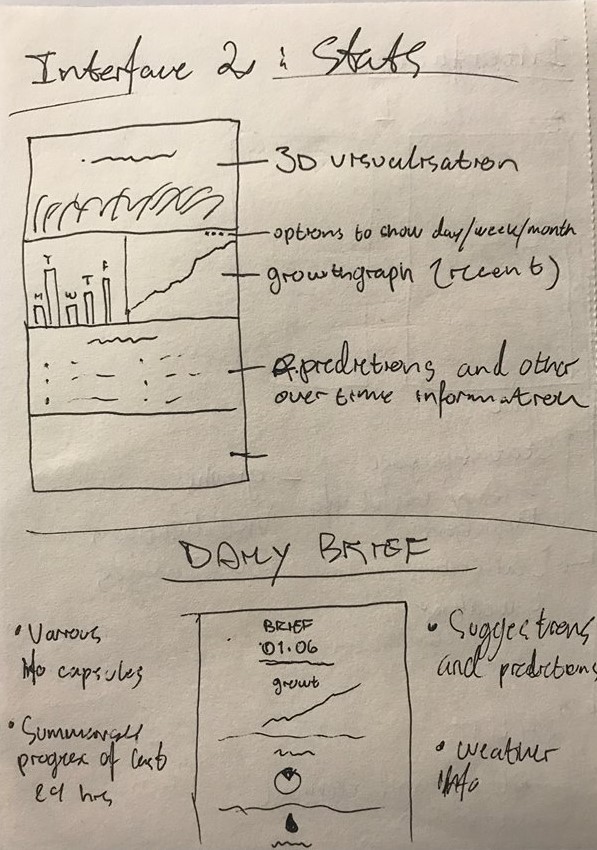 Interface 2 : Stats
3D visualisation
options to show day/week/month
M T W T F
growthgraph (recent)
predictions and other
over time information
DAILY BRIEF
• Various
info capsules
• Summarises
progress of last
24 hrs
BRIEF
01.06
growt
• Suggestions
and predictions
• Weather
info